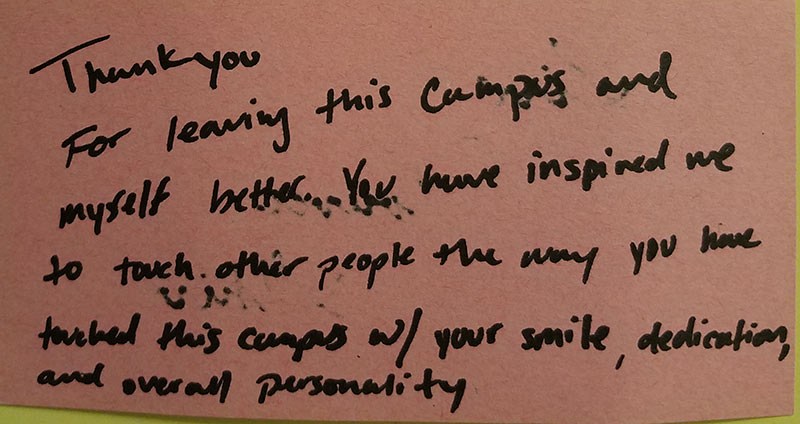 Thank you
For leaving this campus and
myself better. You have inspired me
to touch other people the way you have
touched this campus w/ your smile, dedication,
and overall personality